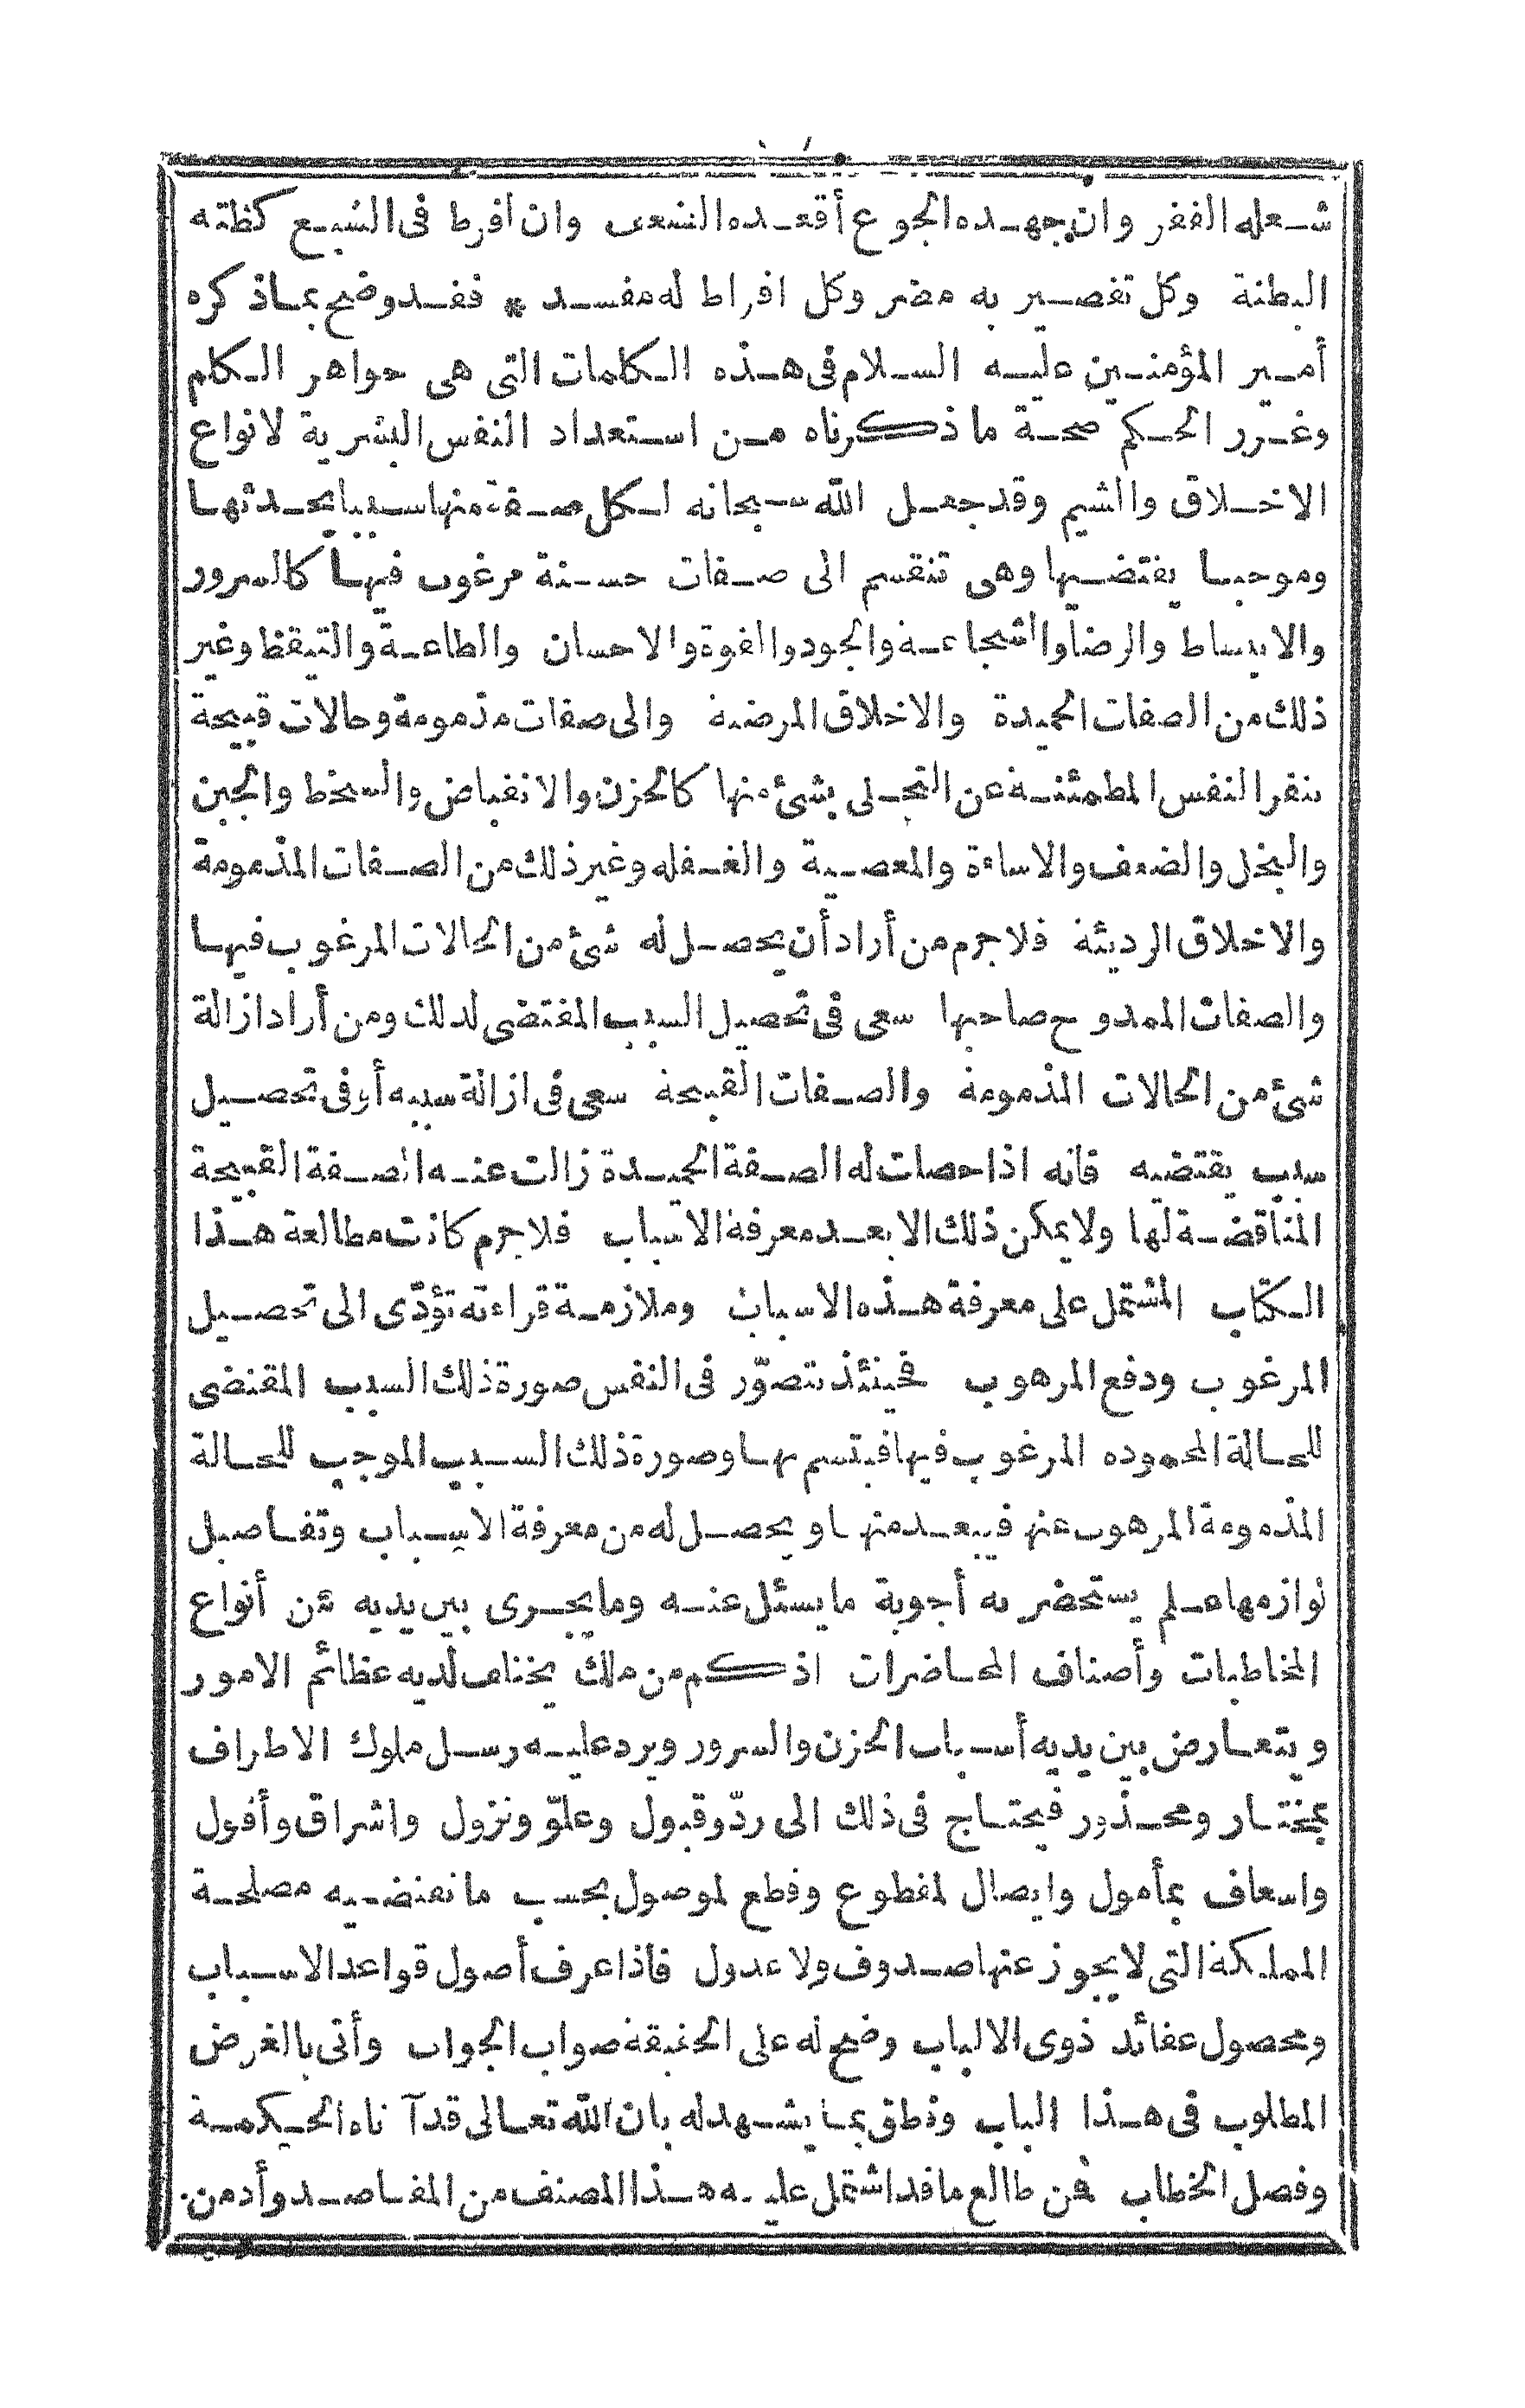 شغله الفقر وان جهده الجوع أقعده الضعف وان أفرط فى الشبع كظته
البطنة وكل تقصير به مضر وكل افراط له مفسد * فقد وضح بماذكره
أمير المؤمنين عليه السلام فى هذه الكلمات التى هى جواهر الكلم
وغرر الحكم صحة ما ذكرناه من استعداد النفس البشرية لانواع
الاخلاق والشيم وقد جعل الله سبحانه لكل صفة منها سببا يحدثها
وموجبا يقتضيها وهى تنقسم الى صفات حسنة مرغوب فيها كالسرور
والانبساط والرضا والشجاعة والجود والقوة والاحسان والطاعة والتيقظ وغير
ذلك من الصفات الحميدة والاخلاق المرضية والى صفات مذمومة وحالات قبيحة
تنفر النفس المطمئنة عن التحلى بشئ منها كالحزن والانقباض والسخط والجبن
والبخل والضعف والاساءة والمعصية والغفله وغير ذلك من الصفات المذمومة
والاخلاق الرديئة فلا جرم من أراد أن يحصل له شئ من الحالات المرغوب فيها
والصفات الممدوح صاحبها سعى فى تحصيل السبب المقتضى لذلك ومن أراد ازالة
شئ من الحالات المذمومة والصفات القبيحة سعى فى ازالة سببه أو فى تحصيل
سبب يقتضيه فانه اذا حصلت له الصفة الحميدة زالت عنه الصفة القبيحة
المناقضة لها ولا يمكن ذلك الا بعد معرفة الاسباب فلا جرم كانت مطالعة هذا
الكتاب المشتمل على معرفة هذه الاسباب وملازمة قراءته تؤدّى الى تحصيل
المرغوب ودفع المرهوب فحينئذ تتصوّر فى النفس صورة ذلك السبب المقتضى
للحالة المحموده المرغوب فيها فيتسم بها وصورة ذلك السبب الموجب للحالة
المذمومة المرهوب عنها فيبعد منها ويحصل له من معرفة الاسباب وتفاصيل
لوازمها علم يستحضر به أجوبة ما يسئل عنه وما يجرى بين يديه من أنواع
المخاطبات وأصناف المحاضرات اذ كم من ملك يختلف لديه عظائم الامور
ويتعارض بين يديه أسباب الحزن والسرور ويرد عليه رسل ملوك الاطراف
بمختار ومحذور فيحتاج فى ذلك الى ردّ وقبول وعلوّ ونزول واشراق وأفول
واسعاف بمأمول وايصال لمقطوع وقطع لموصول بحسب ما تقتضيه مصلحة
المملكة التى لا يجوز عنها صدوف ولا عدول فاذا عرف أصول قواعد الاسباب
ومحصول عقائد ذوى الالباب وضح له على الحقيقة صواب الجواب وأتى بالغرض
المطلوب فى هذا الباب ونطق بما يشهد له بان الله تعالى قد آتاه الحكمة
وفصل الخطاب فمن طالع ما قد اشتمل عليه هذا المصنف من المقاصد وأدمن